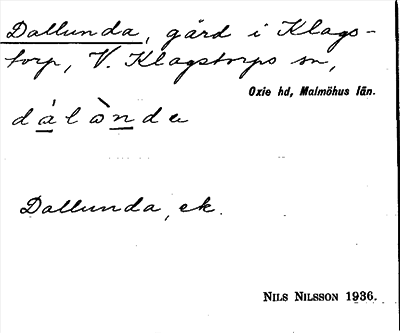 Dallunda, gård i Klags-
torp, V. Klagstorps sn,
Oxie hd, Malmöhus län.
dálàndа
Dallunda, ek.
NILS NILSSON 1936.